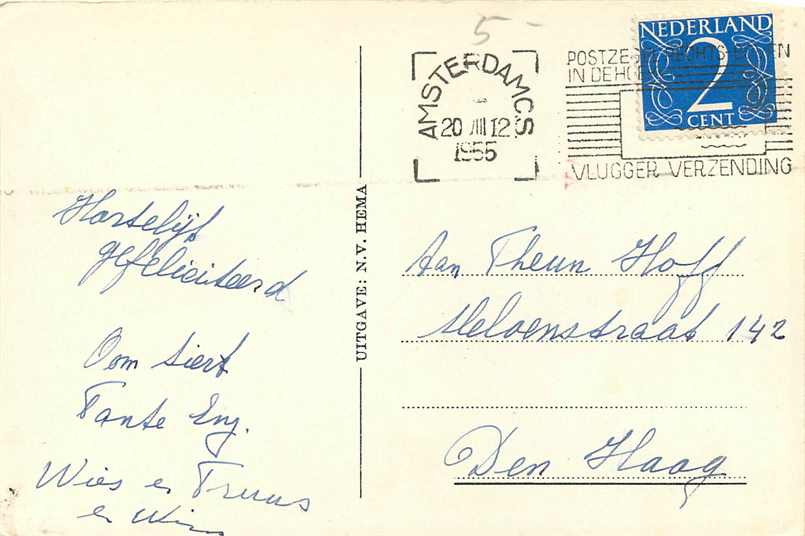 5-
NEDERLAND
2
CENT
AMSTERDAM C.S
20 VIII 12
1955
POSTZE RECHTS EN
IN DE HO
VLUGGER VERZENDING
Hartelijk
gefeliciteerd
Oom Siert
Tante Eng.
Wies en Truus
en Wim
UITGAVE: N.V. HEMA
Aan Theun Hoff
142
Den Haag